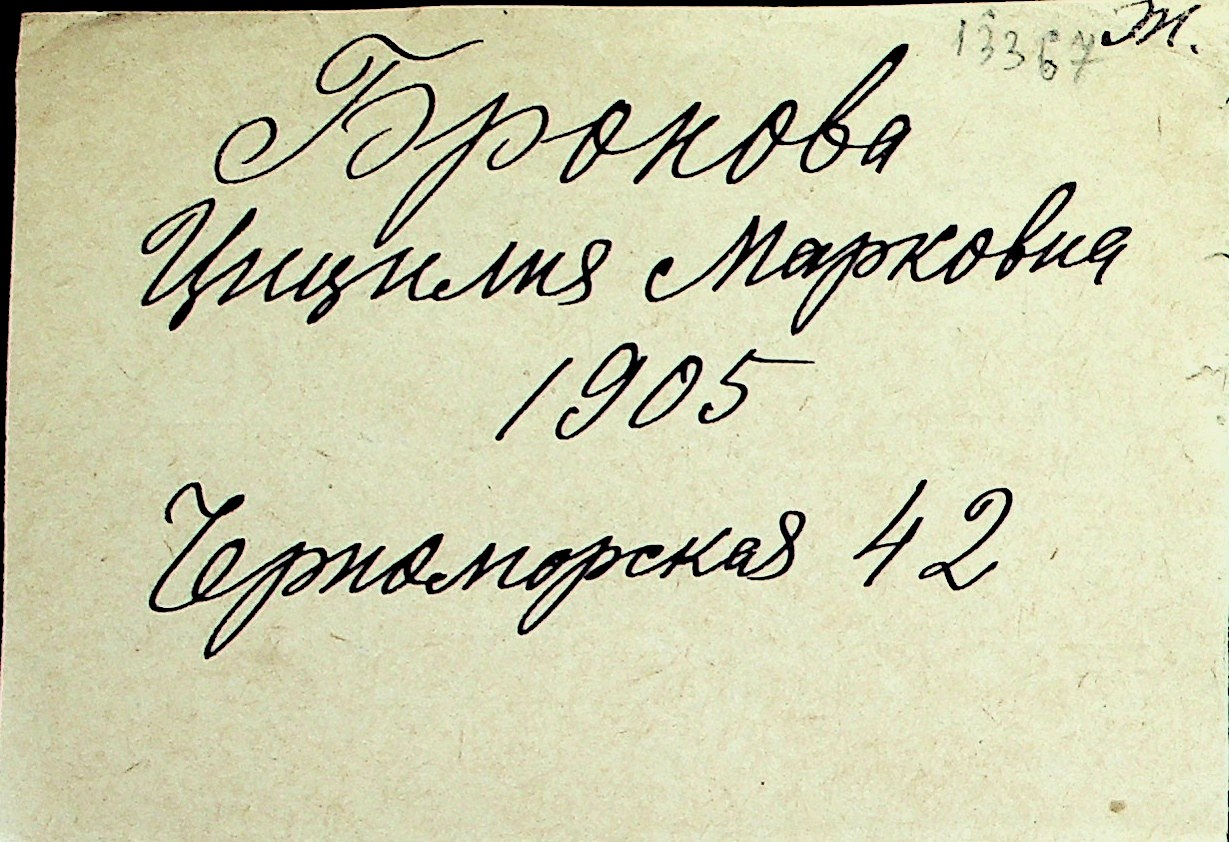 13367 Ж.
Бронова
Цицилия Марковна
1905
Черноморская 42